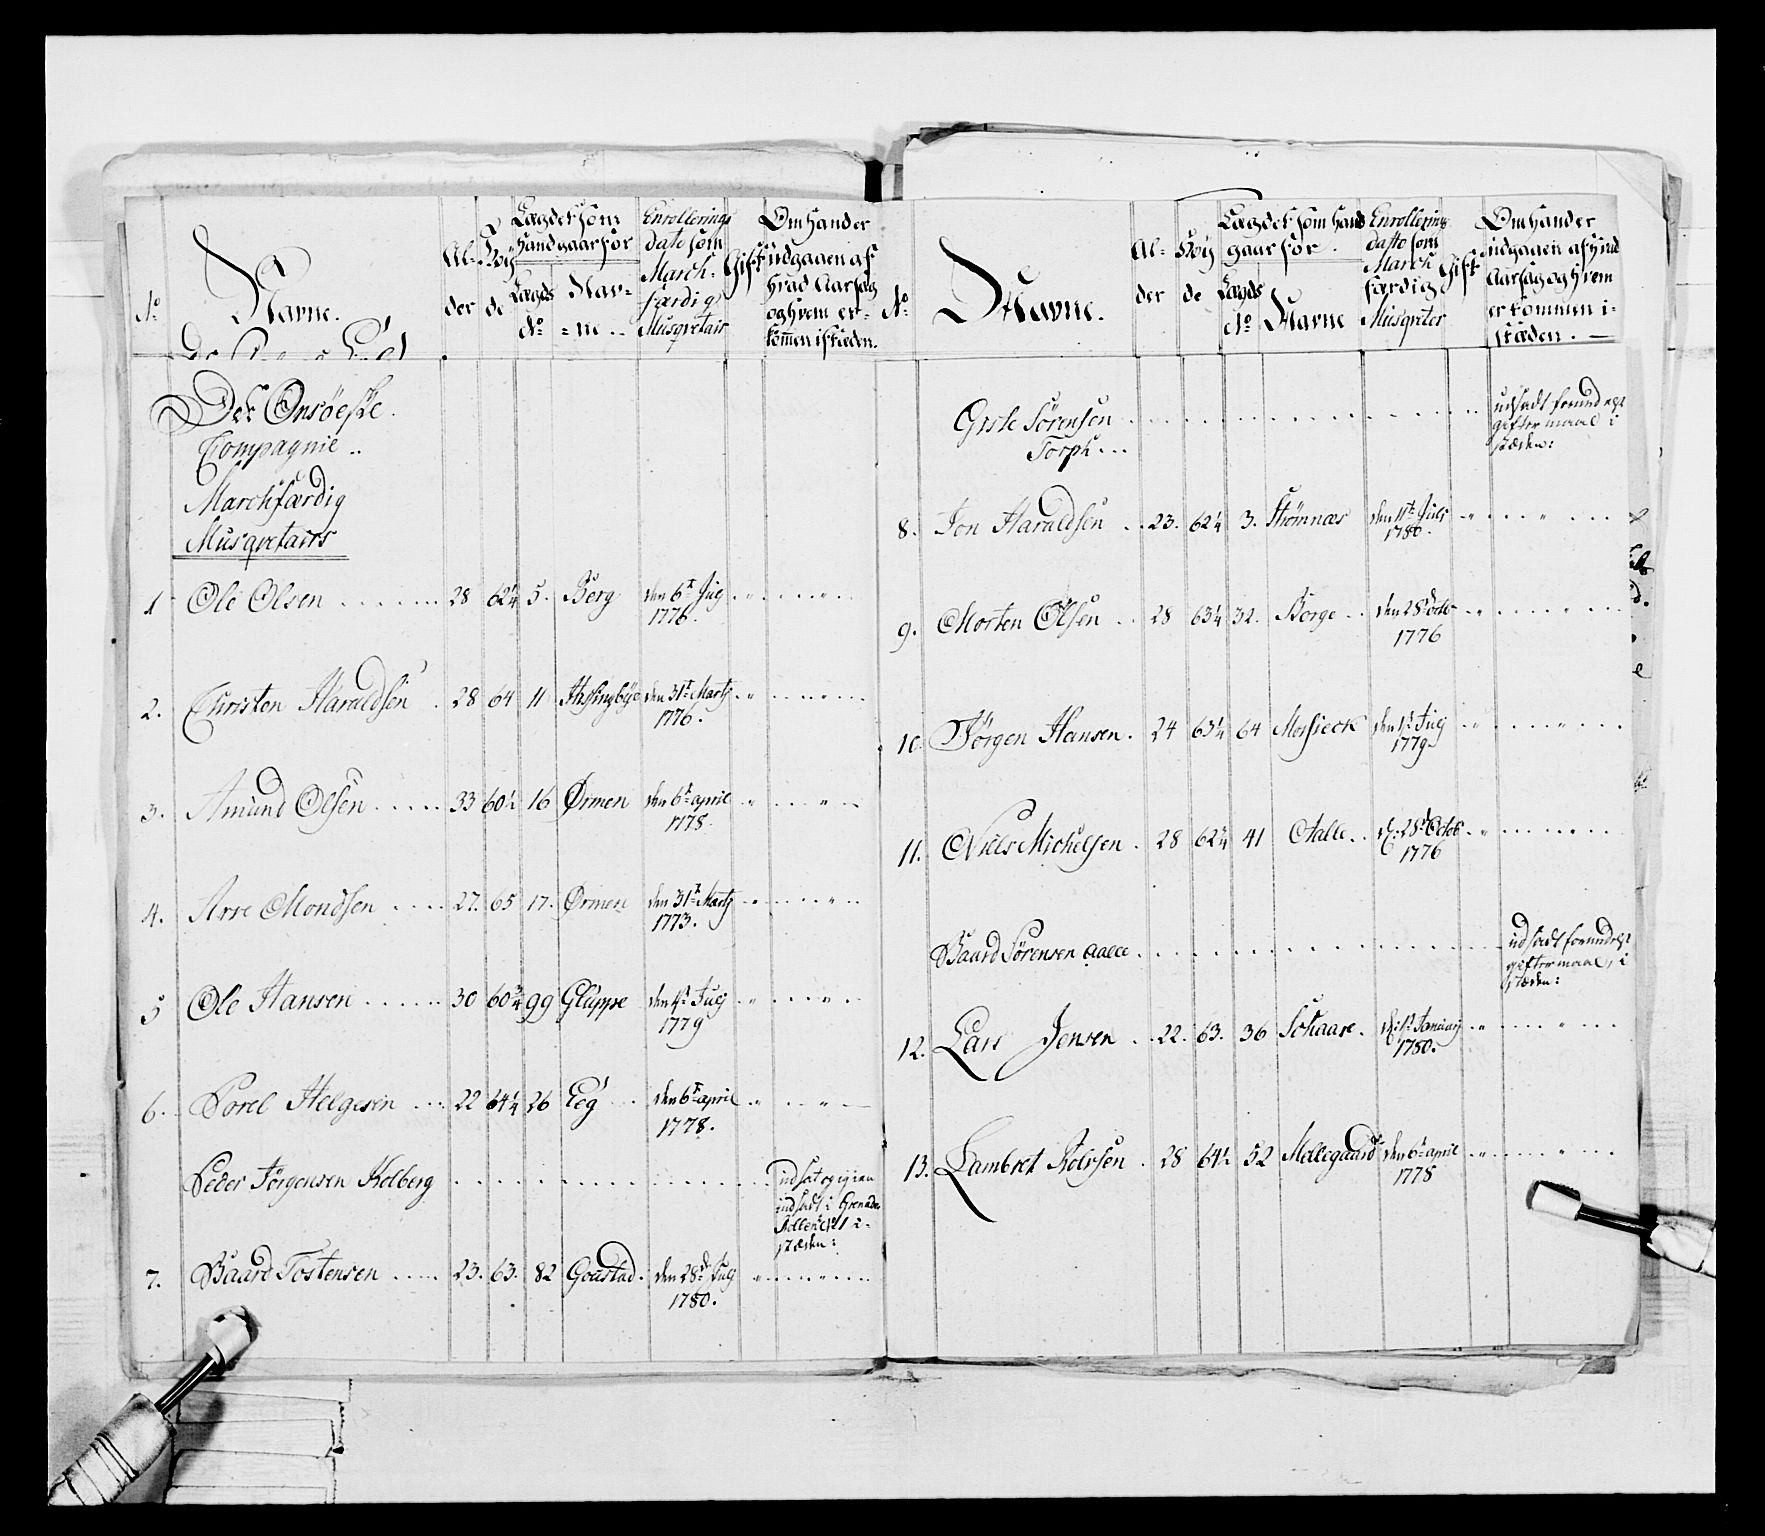 No
Navne.
Al-
der
Höy
de
Lægdet som
hand gaar for
Lægds
No
Nav-
ne
Enrollerings
dato som
March-
færdig
Musqvetair
Gift
Om hand er
udgaaen af
hvad Aarsag
og hvem er
kommen i steden.
Det Onsöeske
Compagnie ..
Marchfærdig
Musqvetairs
1 Ole Olsen 28 62¼ 5. Berg den 6te Julj
1776.
2. Christen Haraldsen 28 64 11 den 31te Martj
1776.
3. Amund Olsen 33 60½ 16 Ørmen den 6te april
1778.
4. Arre Mondsen 27. 65 17. Ørmen den 31te Martj
1773.
5 Ole Hansen 30 60¾ 99 Gluppe den 4de Julj
1779
6. Porel Helgesen 22 64¼ 26 Eeg den 6te april
1778.
Peder Jörgensen Kolberg udsat og igien
udsadt i Grenade
i
stæden:
7. Baard Tostensen 23. 63. 82 Goustad. den 28de Julj
1780.
No
Navne.
Al-
der
Höy
de
Lægdet som hand
gaar for.
Lægds
No
Navne
Enrollerings
dato som
March
færdig
Musqveter
Gift
Om hand er
udgaaen af hvad
Aarsag og hvem
er kommen i-
stæden. —
Giste Sörensen udsadt formedelst
Torph... giftermaal i
stæden:
8. Jon Haraldsen 23. 62¼ 3. Strömnæs den 11te Julj
1780.
9. Morten Olsen 28 63¼ 32. Borge den 28de Octo
1776
10. Jörgen Hansen. 24 63¼ 64 Mossieck den 1te Julj
1779
11. Niels Michelsen. 28 62¾ 41 Aalle. d: 28de Octob
1776
Baard Sörensen Aalle udsadt formedelst
giftermaal, i
stæden:
12. Lars Jensen 22. 63. 36 Schaare. d: 1te Januarij
1780.
13. Lambret Rolvsen 28 64½ 52 Mellegaard den 6te april
1778